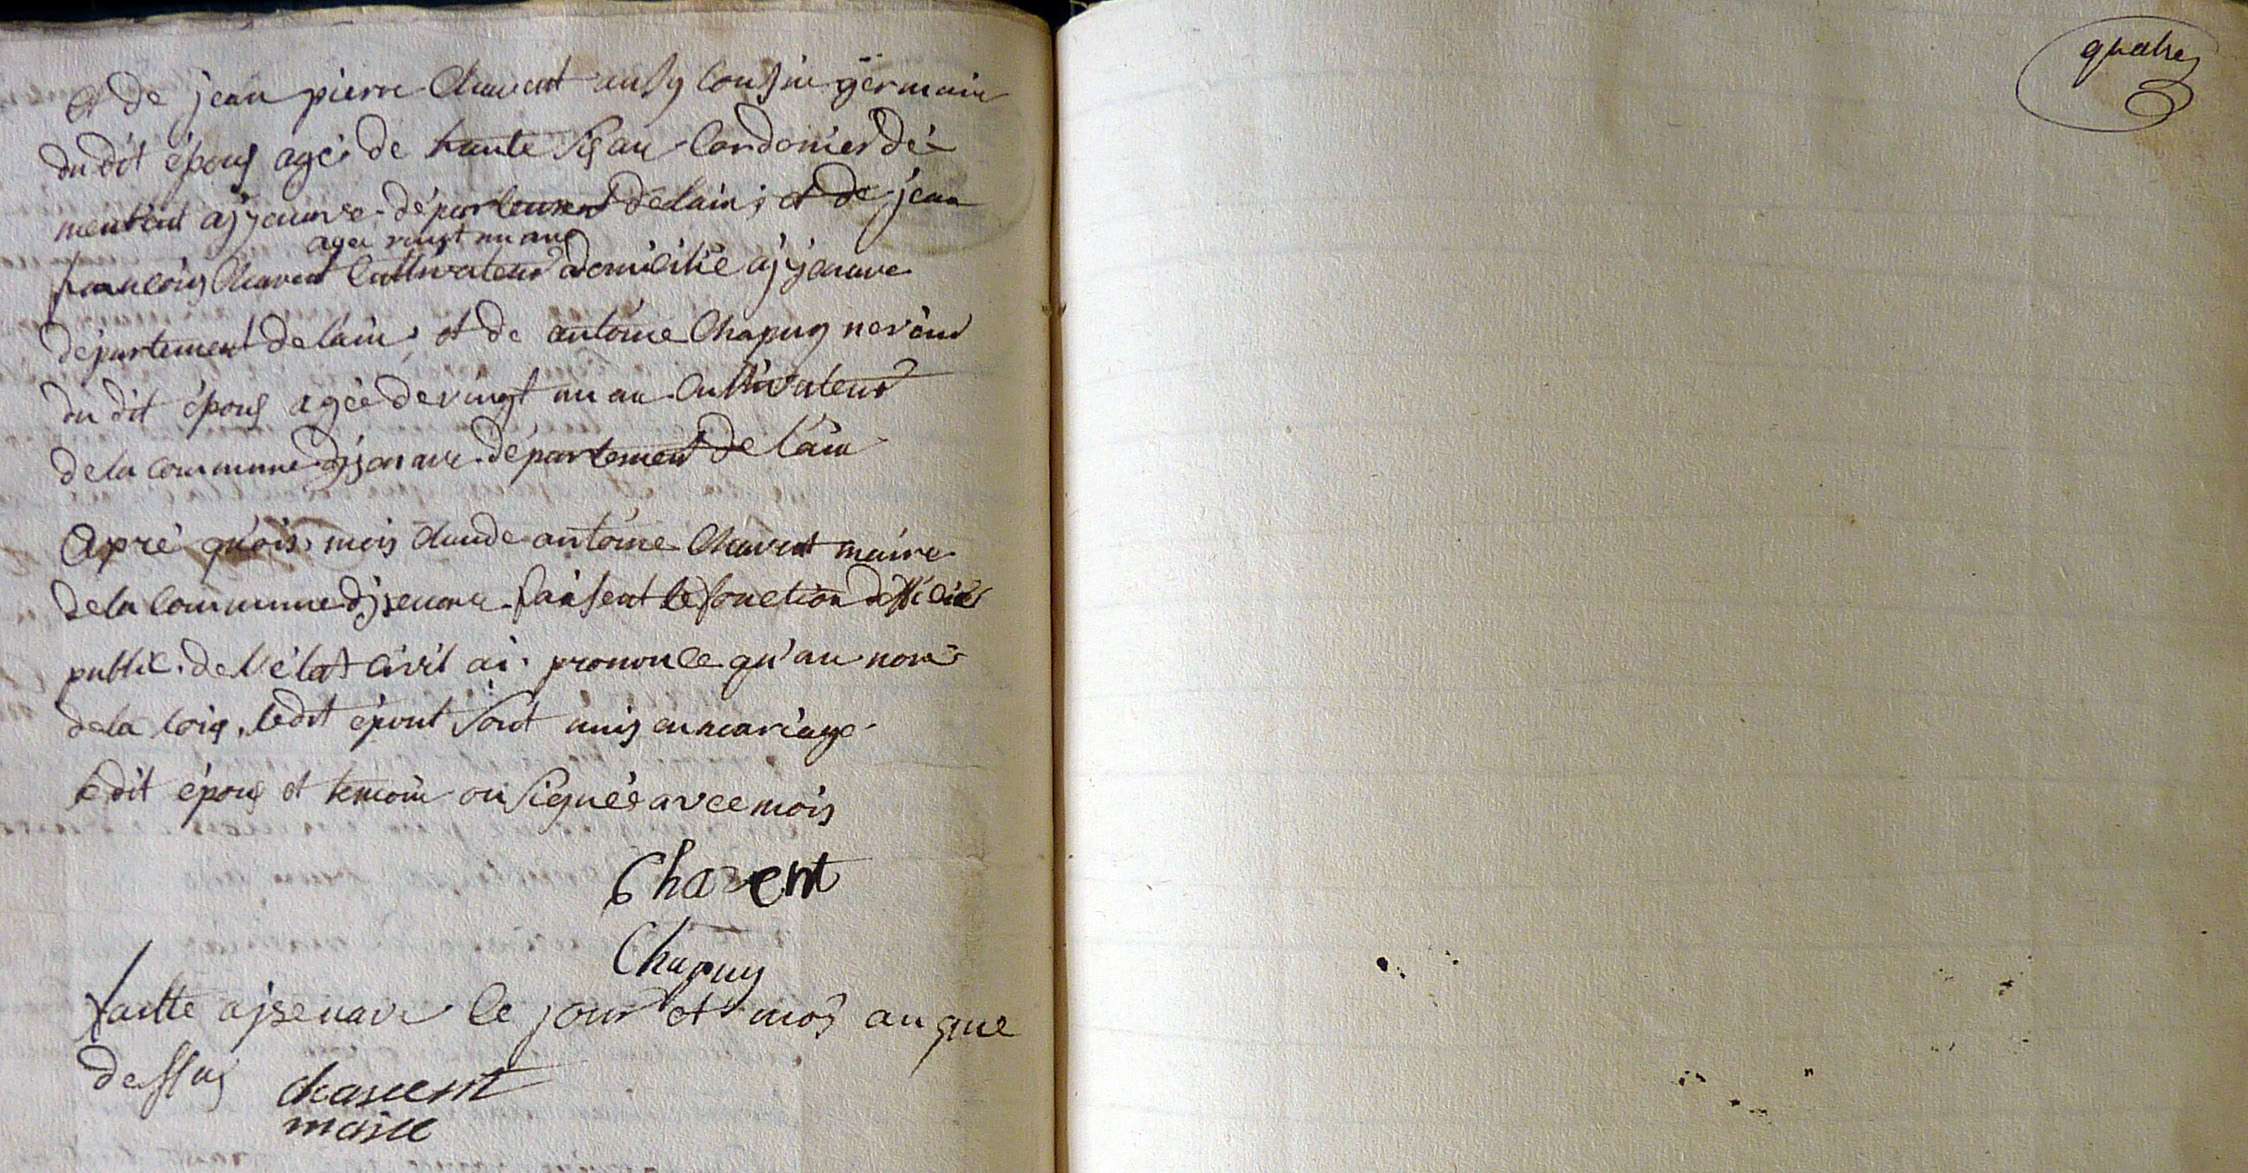 et de jean pierre Chavent ausy Cousin germain
du dit épous agé de trante sis an Cordonier dé
meurant ajyenave département de lain, et de jean
agee vingt un ans
francois Chavent Cultivateur domicilié ajyenave
département de lain, et de antoine Chapuy neveud
du dit épous agée de vingt un an Cultivateur
de la commune djsenave département de l'ain
Apré quois, mois Claude antoine Chavent maire
de la Commune djsenave faisent le fonction dofficier
public de l'état Civil ai prononce qu'au nom
de la loix, ledit épout sont unis en mariage
ledit épous et temoin on signées avec mois
Chavent
Chapuy
faitte ajsenave le jour et mois an que
dessus
chavent
maire
quatre